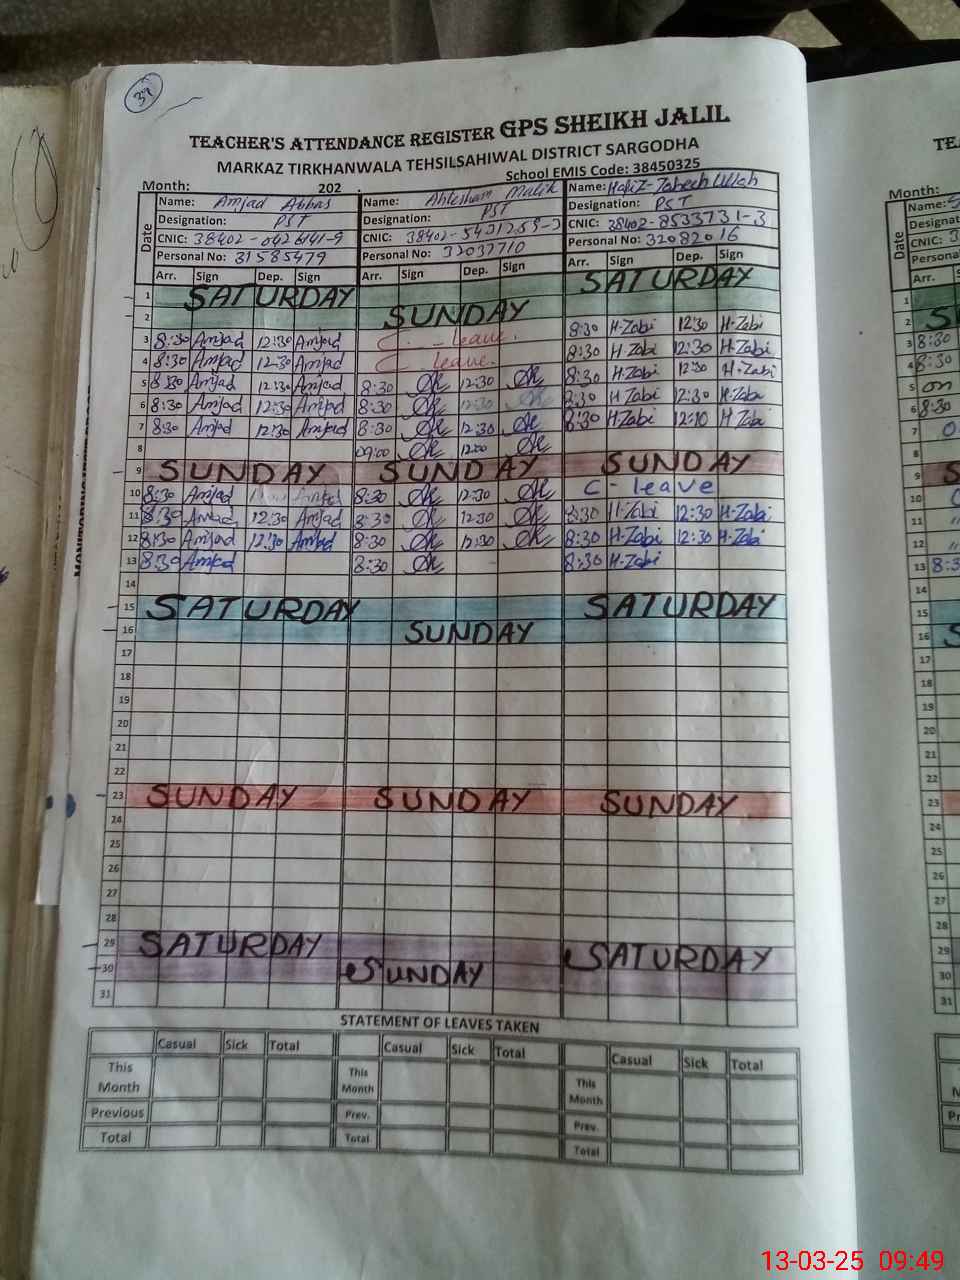 39
TEACHER'S ATTENDANCE REGISTER GPS SHEIKH JALIL
MARKAZ TIRKHANWALA TEHSILSAHIWAL DISTRICT SARGODHA
School EMIS Code: 38450325
Month: 202
Date
Name: Amjad Abbas Name: Ahtesham Malik Name: Hafiz-Zabeeh Ullah
Designation: PST Designation: PST Designation: PST
CNIC: 38402-0426141-9 CNIC: CNIC: 38402-8533731-3
Personal No: 31585479 Personal No: 32037710 Personal No: 32082016
Arr. Sign Dep. Sign Arr. Sign Dep. Sign Arr. Sign Dep. Sign
1 SATURDAY SATURDAY
2 SUNDAY
3 8:30 Amjad 12:30 Amjad C - Leave. 8:30 H-Zabi 12:30 H-Zabi
4 8:30 Amjad 12:30 Amjad C Leave. 8:30 H-Zabi 12:30 H-Zabi
5 8:30 Amjad 12:30 Amjad 8:30 12:30 8:30 H-Zabi 12:30 H-Zabi
6 8:30 Amjad 12:30 Amjad 8:30 12:30 8:30 H-Zabi 12:30 H-Zabi
7 8:30 Amjad 12:30 Amjad 8:30 12:30 8:30 H-Zabi 12:10 H-Zabi
8 09:00 12:00
9 SUNDAY SUNDAY SUNDAY
10 8:30 Amjad Amjad 8:30 12:30 C - leave
11 8:30 Amjad 12:30 Amjad 8:30 12:30 8:30 H-Zabi 12:30 H-Zabi
12 8:30 Amjad 12:30 Amjad 8:30 12:30 8:30 H-Zabi 12:30 H-Zabi
13 8:30 Amjad 8:30 8:30 H-Zabi
14
15 SATURDAY SATURDAY
16 SUNDAY
17
18
19
20
21
22
23 SUNDAY SUNDAY SUNDAY
24
25
26
27
28
29 SATURDAY SATURDAY
30 SUNDAY
31
STATEMENT OF LEAVES TAKEN
Casual Sick Total Casual Sick Total Casual Sick Total
This Month This Month This Month
Previous Prev. Prev.
Total Total Total
TEA
Month:
Name:
Designat
CNIC: 3
Personal
Arr.
1
2
3 8:30
4 8:30
5 on
6 8:30
7
8
9
10
11
12
13 8:3
14
15
16
17
18
19
20
21
22
23
24
25
26
27
28
29
30
31
13-03-25 09:49